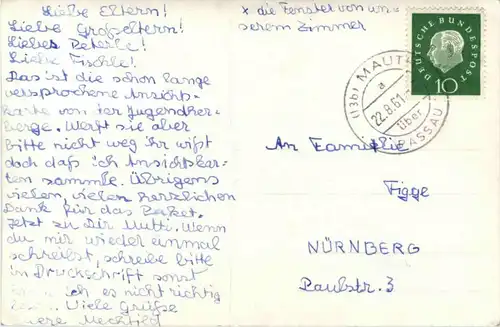 Liebe Eltern!
Liebe Großeltern!
Liebes Peterle!
Liebe Fischle!
Das ist die schon lange
versprochene Ansichts-
karte von der Jugendher-
berge. Werft sie aber
bitte nicht weg Ihr wißt
doch daß ich Ansichtskar-
ten sammle. Übrigens
vielen, vielen herzlichen
Dank für das Paket.
Jetzt zu Dir Mutti. Wenn
du mir wieder einmal
schreibst, schreibe bitte
in Druckschrift sonst
ich es nicht richtig
Viele Grüße
Mechtild
x die Fenster von un-
serem Zimmer
DEUTSCHE BUNDESPOST
10
(13b) MAUTH
a
22.8.61
über
PASSAU
An Familie
Figge
NÜRNBERG
Paulstr. 3